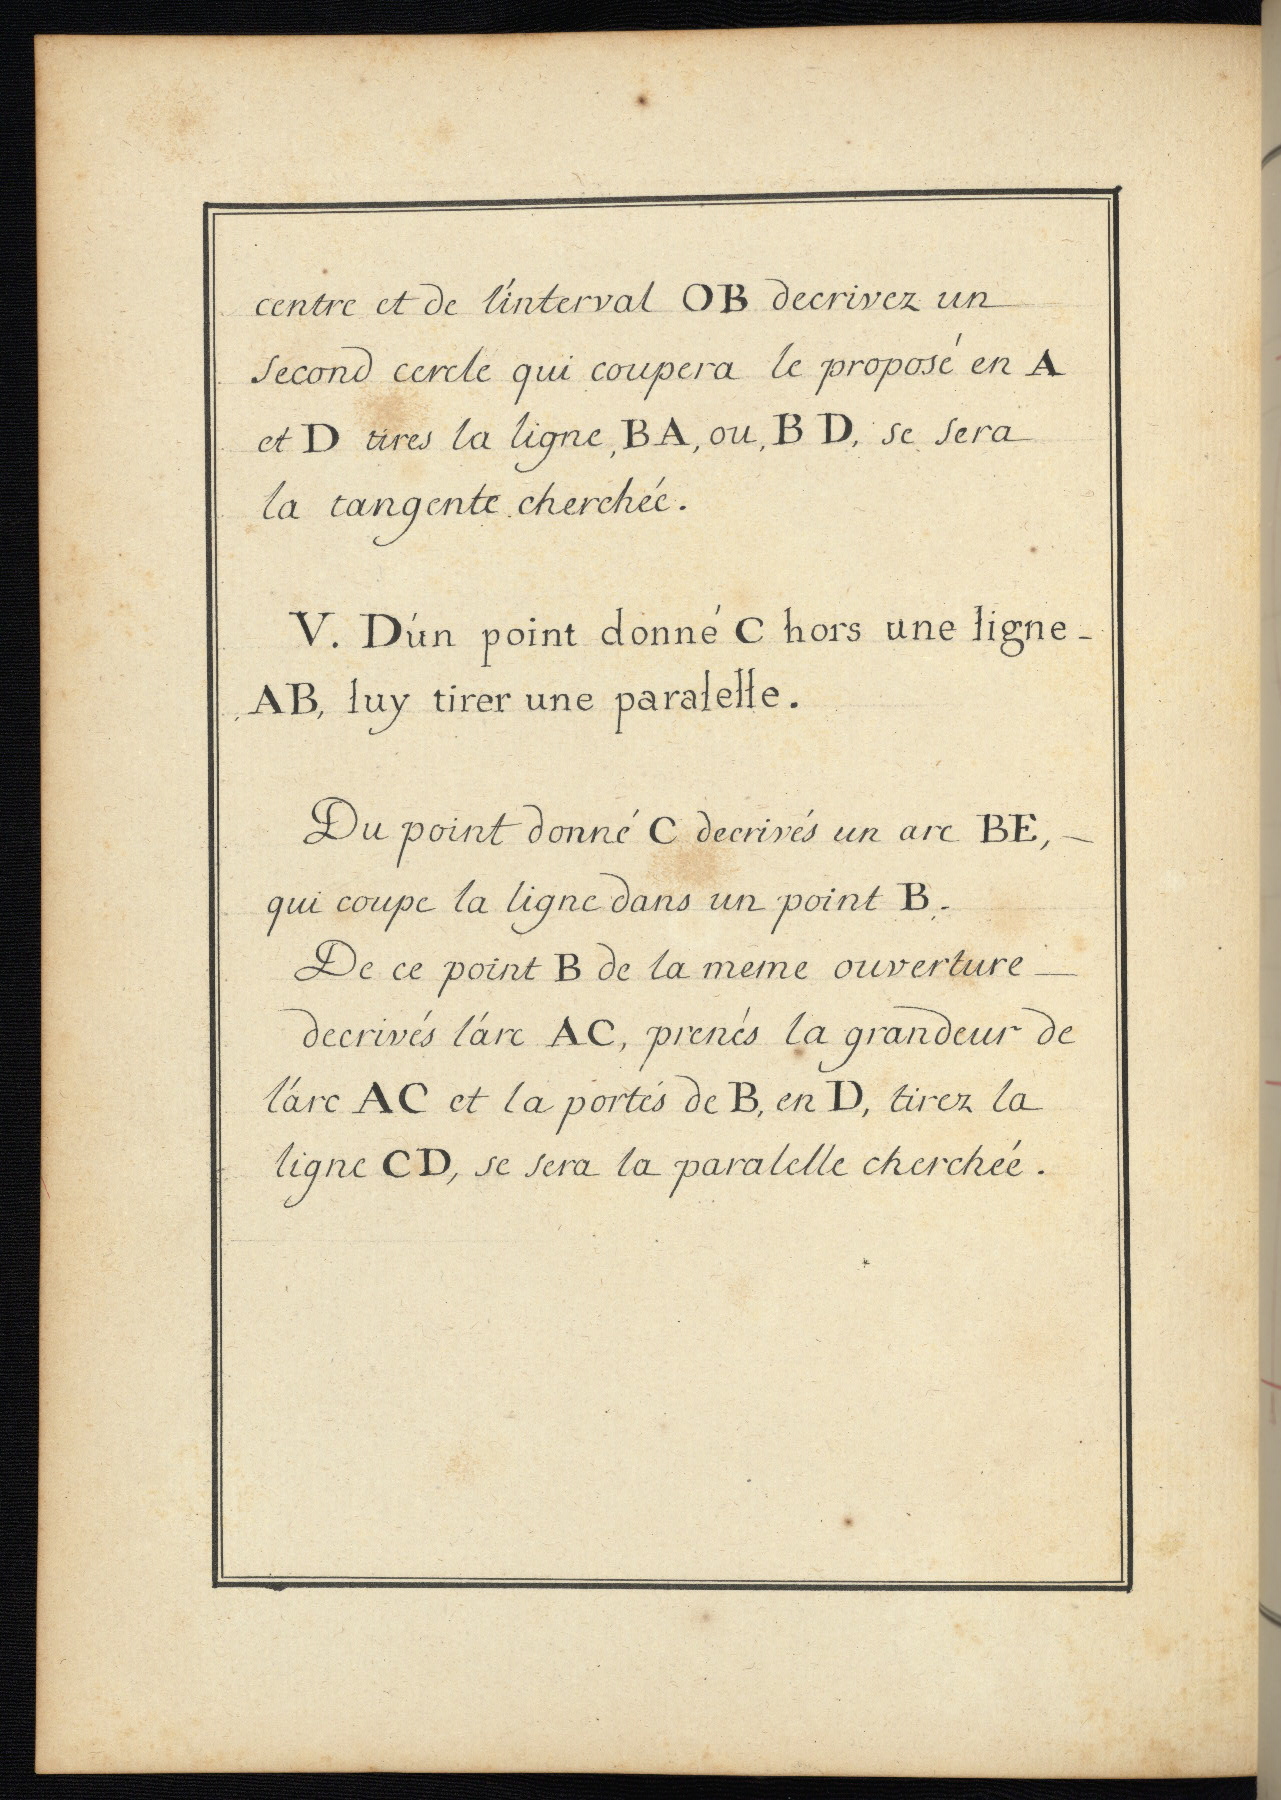 centre et de l'interval OB decrivez un
second cercle qui coupera le proposé en A
et D tires la ligne, BA, ou, BD, se sera
la tangente cherchée.
V. D'un point donné C hors une ligne -
AB, luy tirer une paralelle.
Du point donné C decrivés un arc BE, —
qui coupe la ligne dans un point B.
De ce point B de la meme ouverture —
decrivés l'arc AC, prenés la grandeur de
l'arc AC et la portés de B, en D, tirez la
ligne CD, se sera la paralelle cherchée.